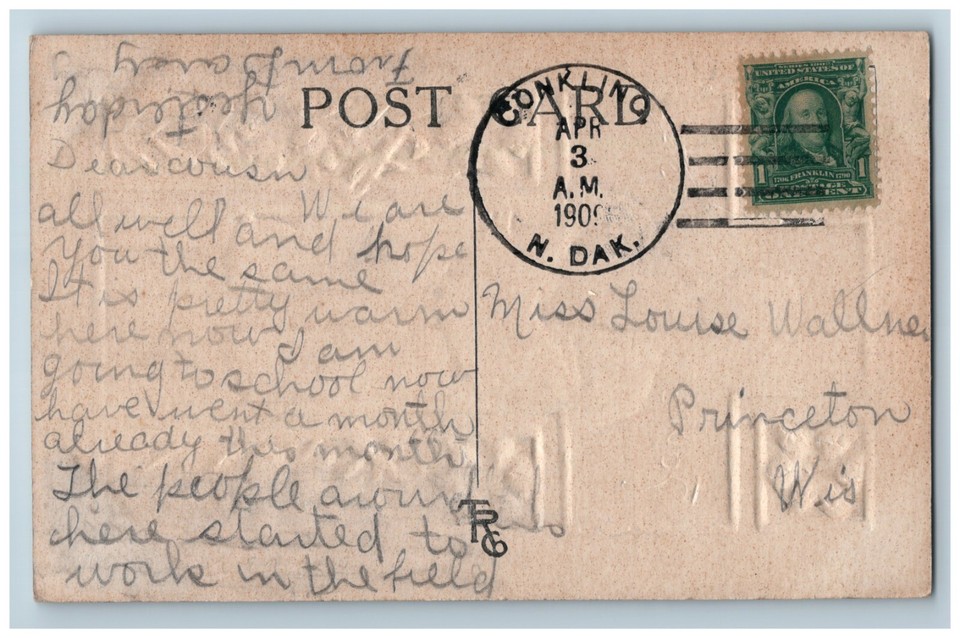 POST CARD
CONKLING
APR
3
A.M.
1909
N. DAK.
SERIES 1902
UNITED STATES OF
AMERICA
1706 FRANKLIN 1790
1 1
ONE CENT
Dear cousin
We are
all well and hope
you the same
It is pretty warm
here now I am
going to school now
have went a month
already this month
The people around
here started to
work in the field
yesterday
from
Miss Louise Wallner
Princeton
Wis
TRG